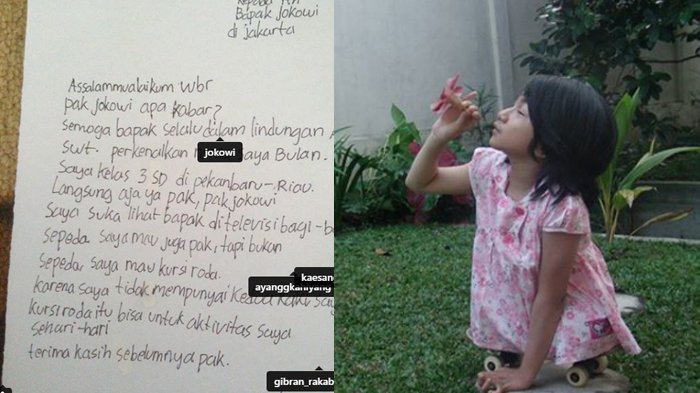 Kepada Yth
Bapak Jokowi
di jakarta
Assalammualaikum wbr
pak jokowi apa kabar?
Semoga bapak selalu dalam lindungan
Swt. perkenalkan saya Bulan.
Saya kelas 3 SD di pekanbaru-Riau.
Langsung aja ya pak, pak jokowi
Saya suka lihat bapak di televisi bagi-b
sepeda. saya mau juga pak, tapi bukan
sepeda. saya mau kursi roda.
karena saya tidak mempunyai kedua kaki say
kursi roda itu bisa untuk aktivitas saya
sehari-hari
terima kasih sebelumnya pak.
jokowi
kaesang
ayanggkahiyang
gibran_rakab